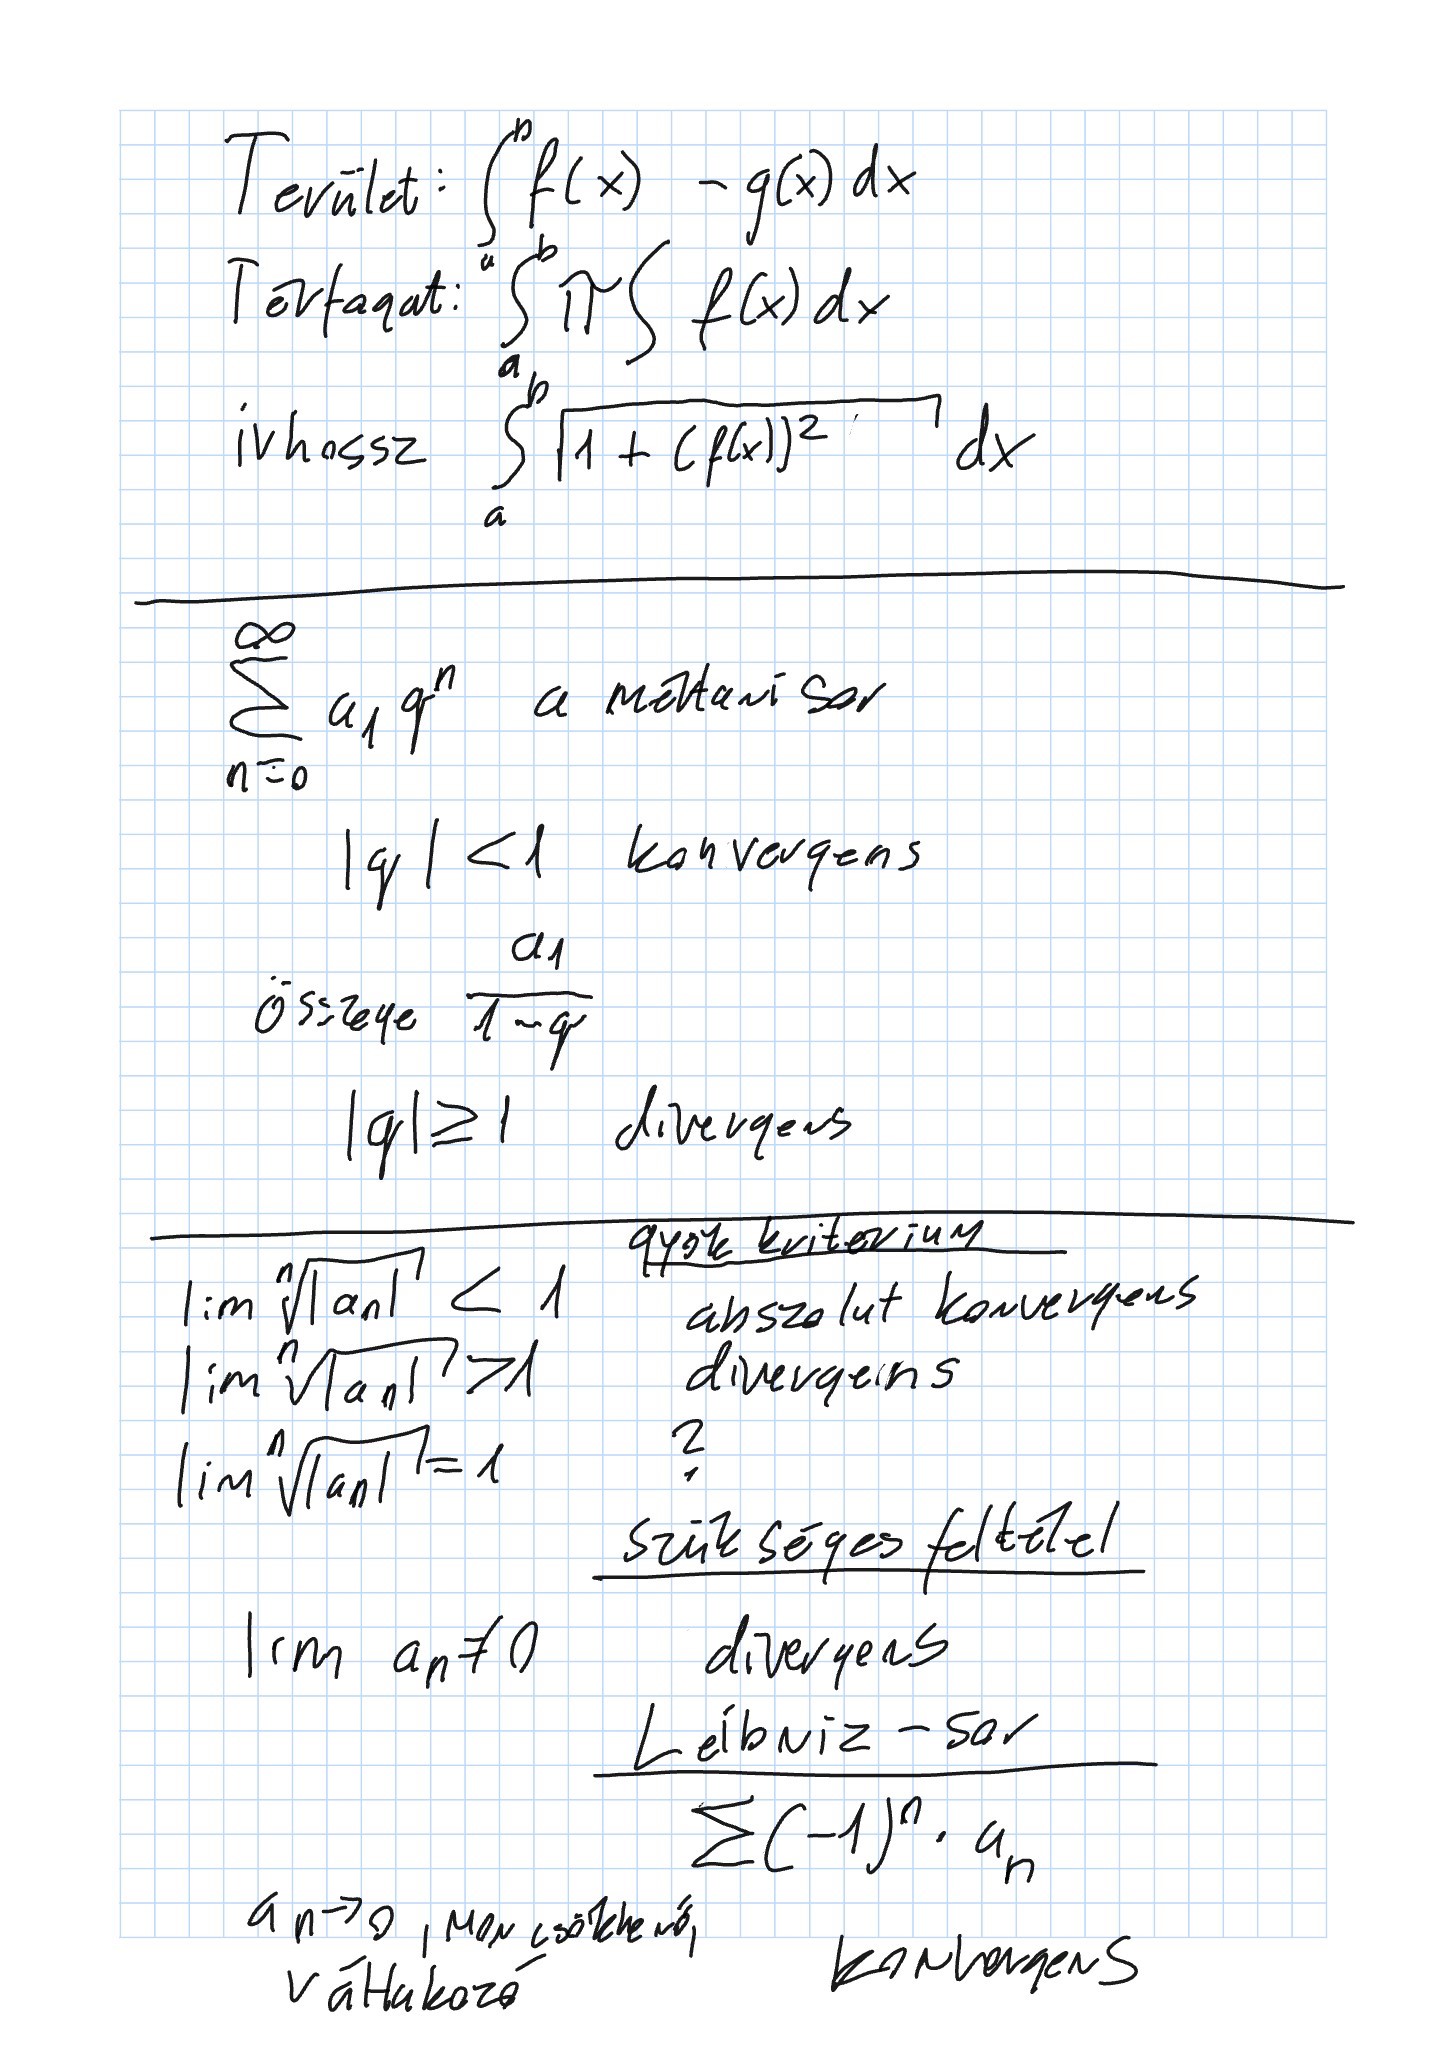 Terület: ∫_a^b f(x) - g(x) dx
Térfagat: ∫_a^b π∫ f(x) dx
ivhossz ∫_a^b √(1 + (f(x))²) dx
∑_{n=0}^∞ a₁ qⁿ a mértani sor
|q| < 1 konvergens
összege a₁/(1-q)
|q| ≥ 1 divergens
gyök kriterium
lim ⁿ√|aₙ| < 1 abszolut konvergens
lim ⁿ√|aₙ| > 1 divergens
lim ⁿ√|aₙ| = 1 ?
szükséges feltétel
lim aₙ ≠ 0 divergens
Leibniz - sor
∑(-1)ⁿ · aₙ
aₙ → 0, mon csökkenő,
váltakozó konvergens